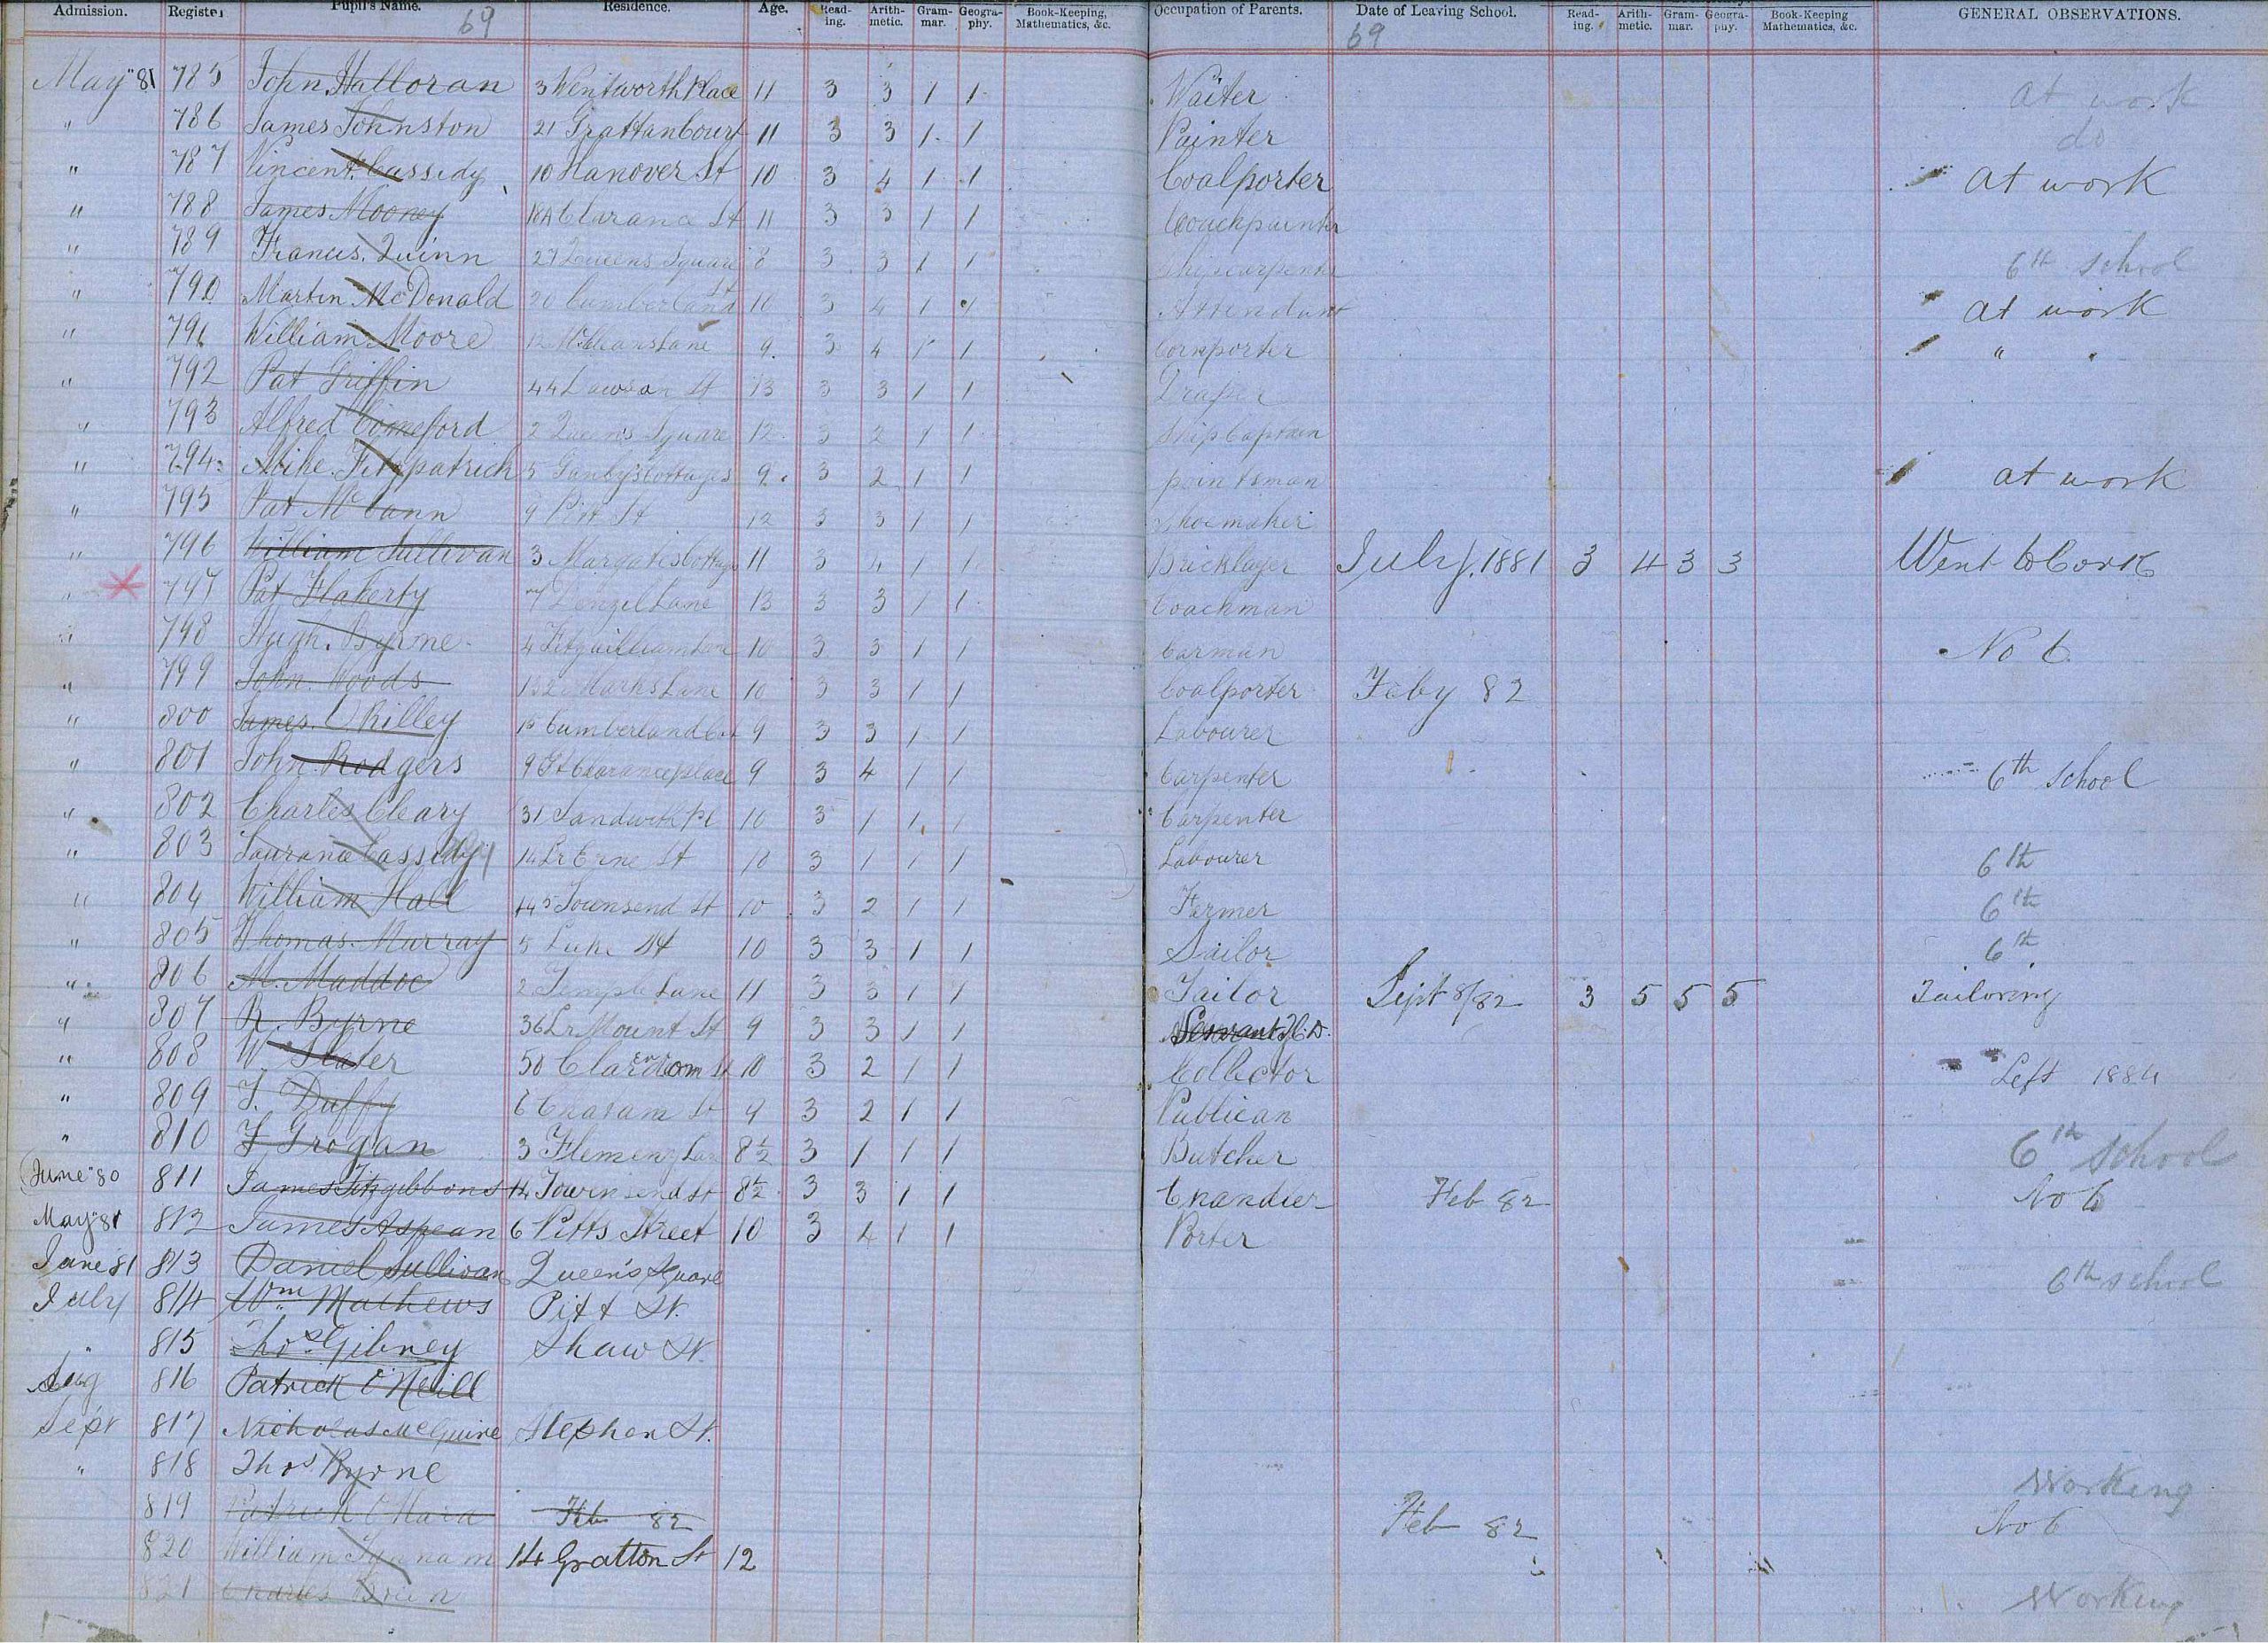 Admission. Register Pupil's Name. Residence. Age. Read-ing. Arith-metic. Gram-mar. Geogra-phy. Book-Keeping, Mathematics, &c. Occupation of Parents. Date of Leaving School. Read-ing. Arith-metic. Gram-mar. Geogra-phy. Book-Keeping Mathematics, &c. GENERAL OBSERVATIONS.
69 69
May "81 785 John Halloran 3 Wentworth Place 11 3 3 1 1 Waiter at work
" 786 James Johnston 21 Grattan Court 11 3 3 1 1 Painter do
" 787 Vincent Cassidy 10 Hanover St 10 3 4 1 1 Coalporter at work
" 788 James Mooney 18A Clarance St 11 3 3 1 1 Coachpainter
" 789 Francis Quinn 27 Queens Square 8 3 3 1 1 Shipcarpenter 6th School
" 790 Martin McDonald 20 Cumberland St 10 3 4 1 1 Attendant at work
" 791 William Moore 12 McCleans Lane 9 3 4 1 1 Cornporter "
" 792 Pat Griffin 44 Lawson St 13 3 3 1 1 Draper
" 793 Alfred Comeford 2 Queen's Square 12 3 2 1 1 Ship Captain
" 794 Mike Fitzpatrick 5 Cottages 9 3 2 1 1 pointsman at work
" 795 Pat McCann 9 Pitt St 12 3 3 1 1 Shoemaker
" 796 William Sullivan 3 Cottages 11 3 4 1 1 Bricklayer July 1881 3 4 3 3 Went to Cork
" 797 Pat Flaherty 7 Denzel Lane 13 3 3 1 1 Coachman
" 798 Hugh Byrne 4 Fitzwilliam Lane 10 3 3 1 1 Carman No 6
" 799 John Woods 132 Marks Lane 10 3 3 1 1 Coalporter Feby 82
" 800 James O Rilley 15 Cumberland 9 3 3 1 1 Labourer
" 801 John Rodgers 9 Gt Clarance place 9 3 4 1 1 Carpenter 6th School
" 802 Charles Cleary 31 Sandwith Pl 10 3 1 1 1 Carpenter
" 803 Laurance Cassidy 14 Lr Erne St 10 3 1 1 1 Labourer 6th
" 804 William Hall 145 Townsend St 10 3 2 1 1 Farmer 6th
" 805 Thomas Murray 5 Luke St 10 3 3 1 1 Sailor 6th
" 806 M. Maddoc 2 Temple Lane 11 3 3 1 1 Tailor Sept 8/82 3 5 5 5 Tailoring
" 807 R. Byrne 36 Lr Mount St 9 3 3 1 1 Servant
" 808 W Slater 50 St 10 3 2 1 1 Collector Left 1884
" 809 J. Duffy 6 St 9 3 2 1 1 Publican
" 810 F Grogan 3 Fleming Lane 8½ 3 1 1 1 Butcher 6th School
June "80 811 James Fitzgibbons 14 Townsend St 8½ 3 3 1 1 Chandler Feb 82 No 6
May "81 812 James Aspean 6 Pitts Street 10 3 4 1 1 Porter
June 81 813 Daniel Sullivan Queen's Square 6th school
July 814 Wm Mathews Pitt St.
" 815 Thos Gibney Shaw St.
Aug 816 Patrick O'Neill
Sept 817 Nicholas McGuire Stephen St.
" 818 Thos Byrne Working
819 Patrick O'Hara Feb 82 Feb 82 No 6
820 William 14 Gratton St 12
821 Charles Working